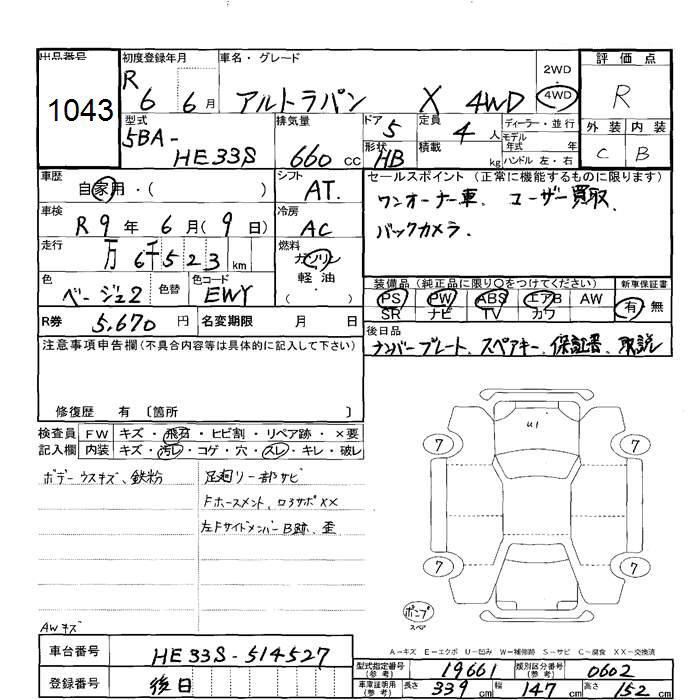 出品番号
1043
初度登録年月
R 6 6 月
車名・グレード
アルトラパン X 4WD
2WD
4WD
評価点
R
型式
5BA-
HE33S
排気量
660 cc
ドア 5
形状 HB
定員 4 人
積載 kg
ディーラー・並行
モデル
年式 年
ハンドル 左・右
外装 内装
C B
車歴
自家用・( )
シフト
AT.
車検
R 9 年 6 月( 9 日)
冷房
AC
走行
万 6千523 km
燃料
ガソリン
軽油
( )
色
ベージュ2
色替
色コード
EWY
R券 5,670 円
名変期限 月 日
セールスポイント (正常に機能するものに限ります)
ワンオーナー車、ユーザー買取、
バックカメラ.
装備品 (純正品に限り○をつけてください)
PS PW ABS エアB AW
SR ナビ TV カワ
新車保証書
有・無
後日品
ナンバープレート、スペアキー、保証書、取説
注意事項申告欄 (不具合内容等は具体的に記入して下さい)
修復歴 有 〔箇所 〕
検査員 FW キズ・飛石・ヒビ割・リペア跡・×要
記入欄 内装 キズ・汚レ・コゲ・穴・スレ・キレ・破レ
ボデーウスキズ、鉄粉
足廻リ一部サビ
Fホースメント、ロアサポXX
左FサイドメンバーB跡、歪
AWキズ
U1
7 7
7 7
ポンプ
スペア
A-キズ E-エクボ U-凹み W-補修跡 S-サビ C-腐食 XX-交換済
車台番号 HE33S-514527
登録番号 後日
型式指定番号
(参考) 19661
類別区分番号
(参考) 0602
車庫証明用
(参考) 長さ 339 cm 幅 147 cm 高さ 152 cm